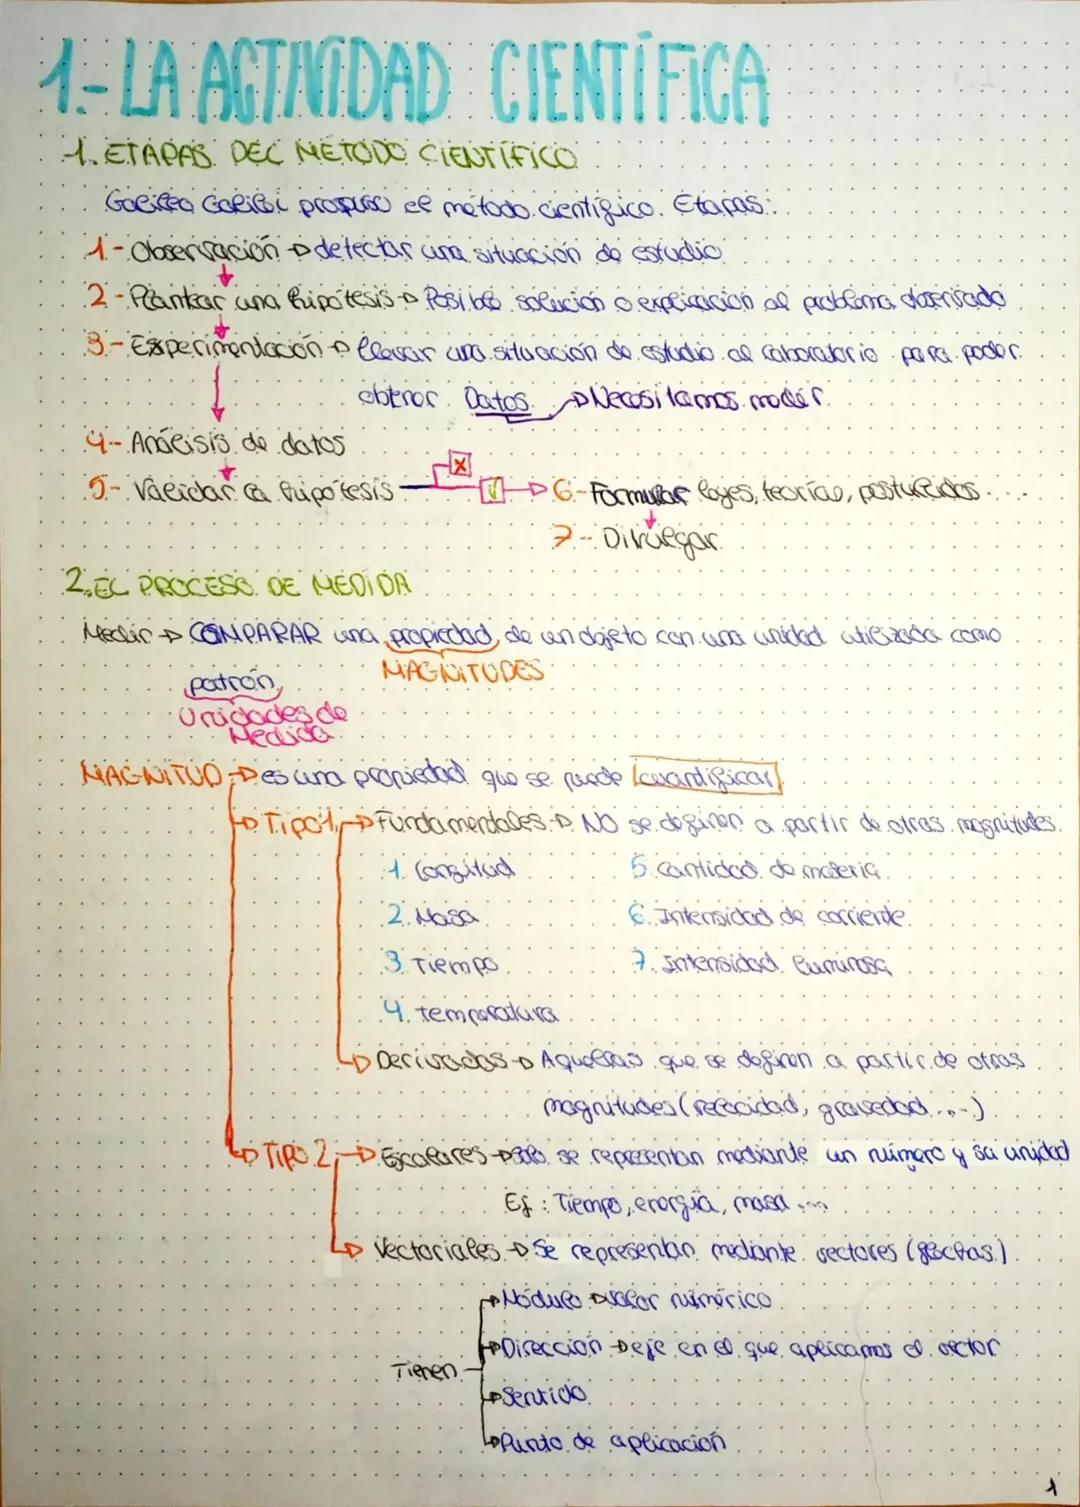 1.- LA ACTIVIDAD CIENTÍFICA
1. ETAPAS DEL MÉTODO CIENTÍFICO
Galileo Galilei propuso el método científico. Etapas:
1- Observación → detectar una situación de estudio
2- Plantear una hipótesis → Posible solución o explicación al problema observado
3.- Experimentación → llevar una situación de estudio al laboratorio para poder
obtener Datos → Necesitamos medir.
4- Análisis de datos
5- Validar la hipótesis x ✓ → 6- Formular leyes, teorías, postulados...
7- Divulgar
2. EL PROCESO DE MEDIDA
Medir → COMPARAR una propiedad de un objeto con una unidad utilizada como
MAGNITUDES
patrón
Unidades de
Medida
MAGNITUD → es una propiedad que se puede cuantificar
→ Tipo 1 → Fundamentales → NO se definen a partir de otras magnitudes.
1. Longitud 5. Cantidad de materia
2. Masa 6. Intensidad de corriente
3. Tiempo 7. Intensidad luminosa
4. Temperatura
→ Derivadas → Aquellas que se definen a partir de otras
magnitudes (velocidad, gravedad...)
→ TIPO 2 → Escalares → solo se representan mediante un número y su unidad
Ej: Tiempo, energía, masa...
→ Vectoriales → Se representan mediante vectores (flechas)
→ Módulo → valor numérico
→ Dirección → eje en el que aplicamos el vector
Tienen
→ Sentido
→ Punto de aplicación
1